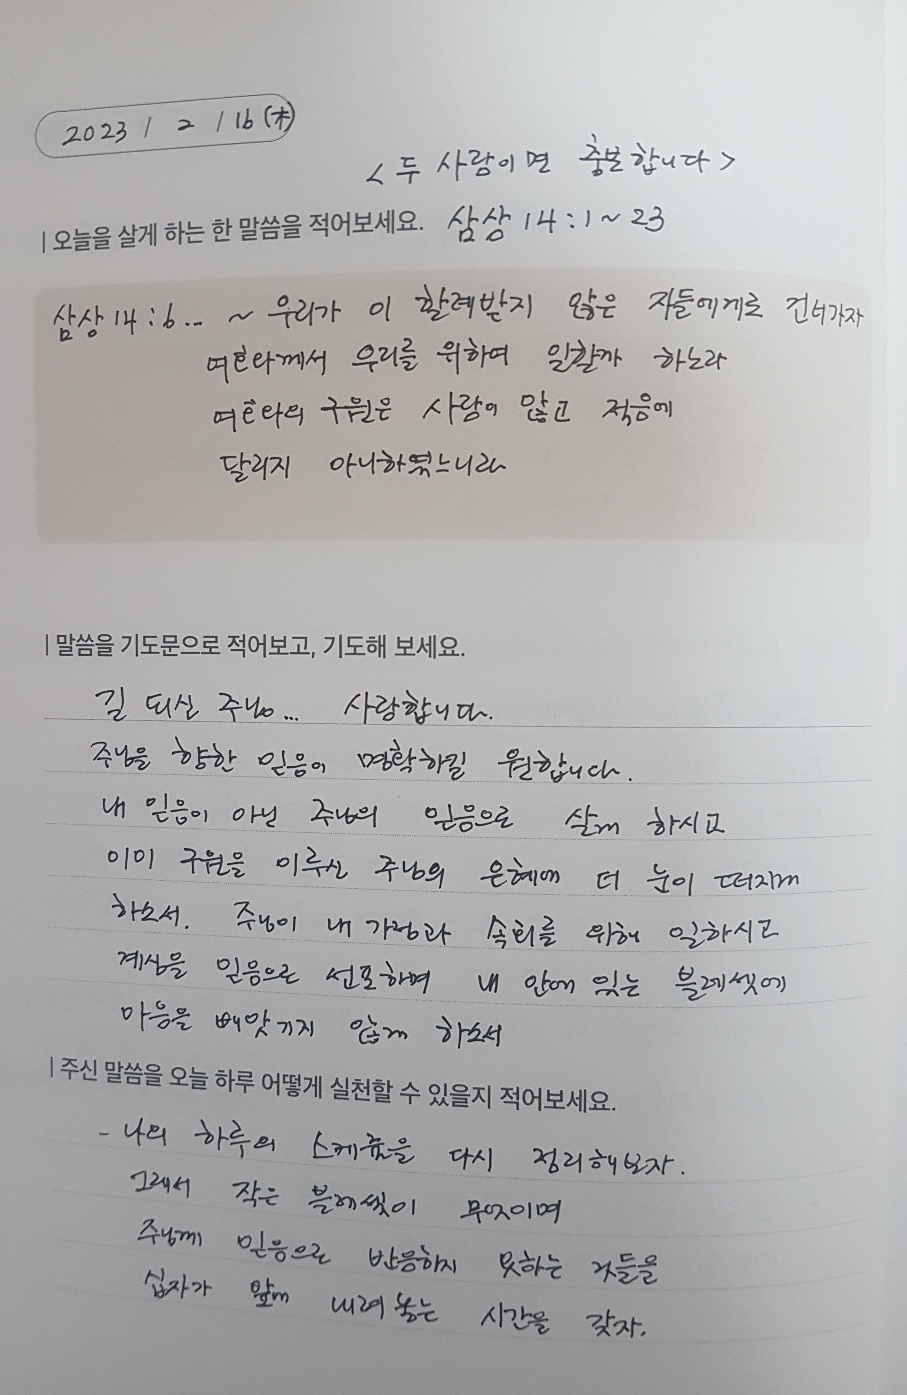 2023 / 2 / 16 (木)
< 두 사람이면 충분합니다 >
| 오늘을 살게 하는 한 말씀을 적어보세요. 삼상 14 : 1 ~ 23
삼상 14 : 6 ... ~ 우리가 이 할례받지 않은 자들에게로 건너가자
여호와께서 우리를 위하여 일할까 하노라
여호와의 구원은 사람이 많고 적음에
달리지 아니하였느니라
| 말씀을 기도문으로 적어보고, 기도해 보세요.
길 되신 주님... 사랑합니다.
주님을 향한 믿음이 명확하길 원합니다.
내 믿음이 아닌 주님의 믿음으로 살게 하시고
이미 구원을 이루신 주님의 은혜에 더 눈이 떠지게
하소서. 주님이 내 가정과 속회를 위해 일하시고
계심을 믿음으로 선포하며 내 안에 있는 블레셋에
마음을 빼앗기지 않게 하소서
| 주신 말씀을 오늘 하루 어떻게 실천할 수 있을지 적어보세요.
- 나의 하루의 스케쥴을 다시 정리해보자.
그래서 작은 블레셋이 무엇이며
주님께 믿음으로 반응하지 못하는 것들을
십자가 앞에 내려놓는 시간을 갖자.